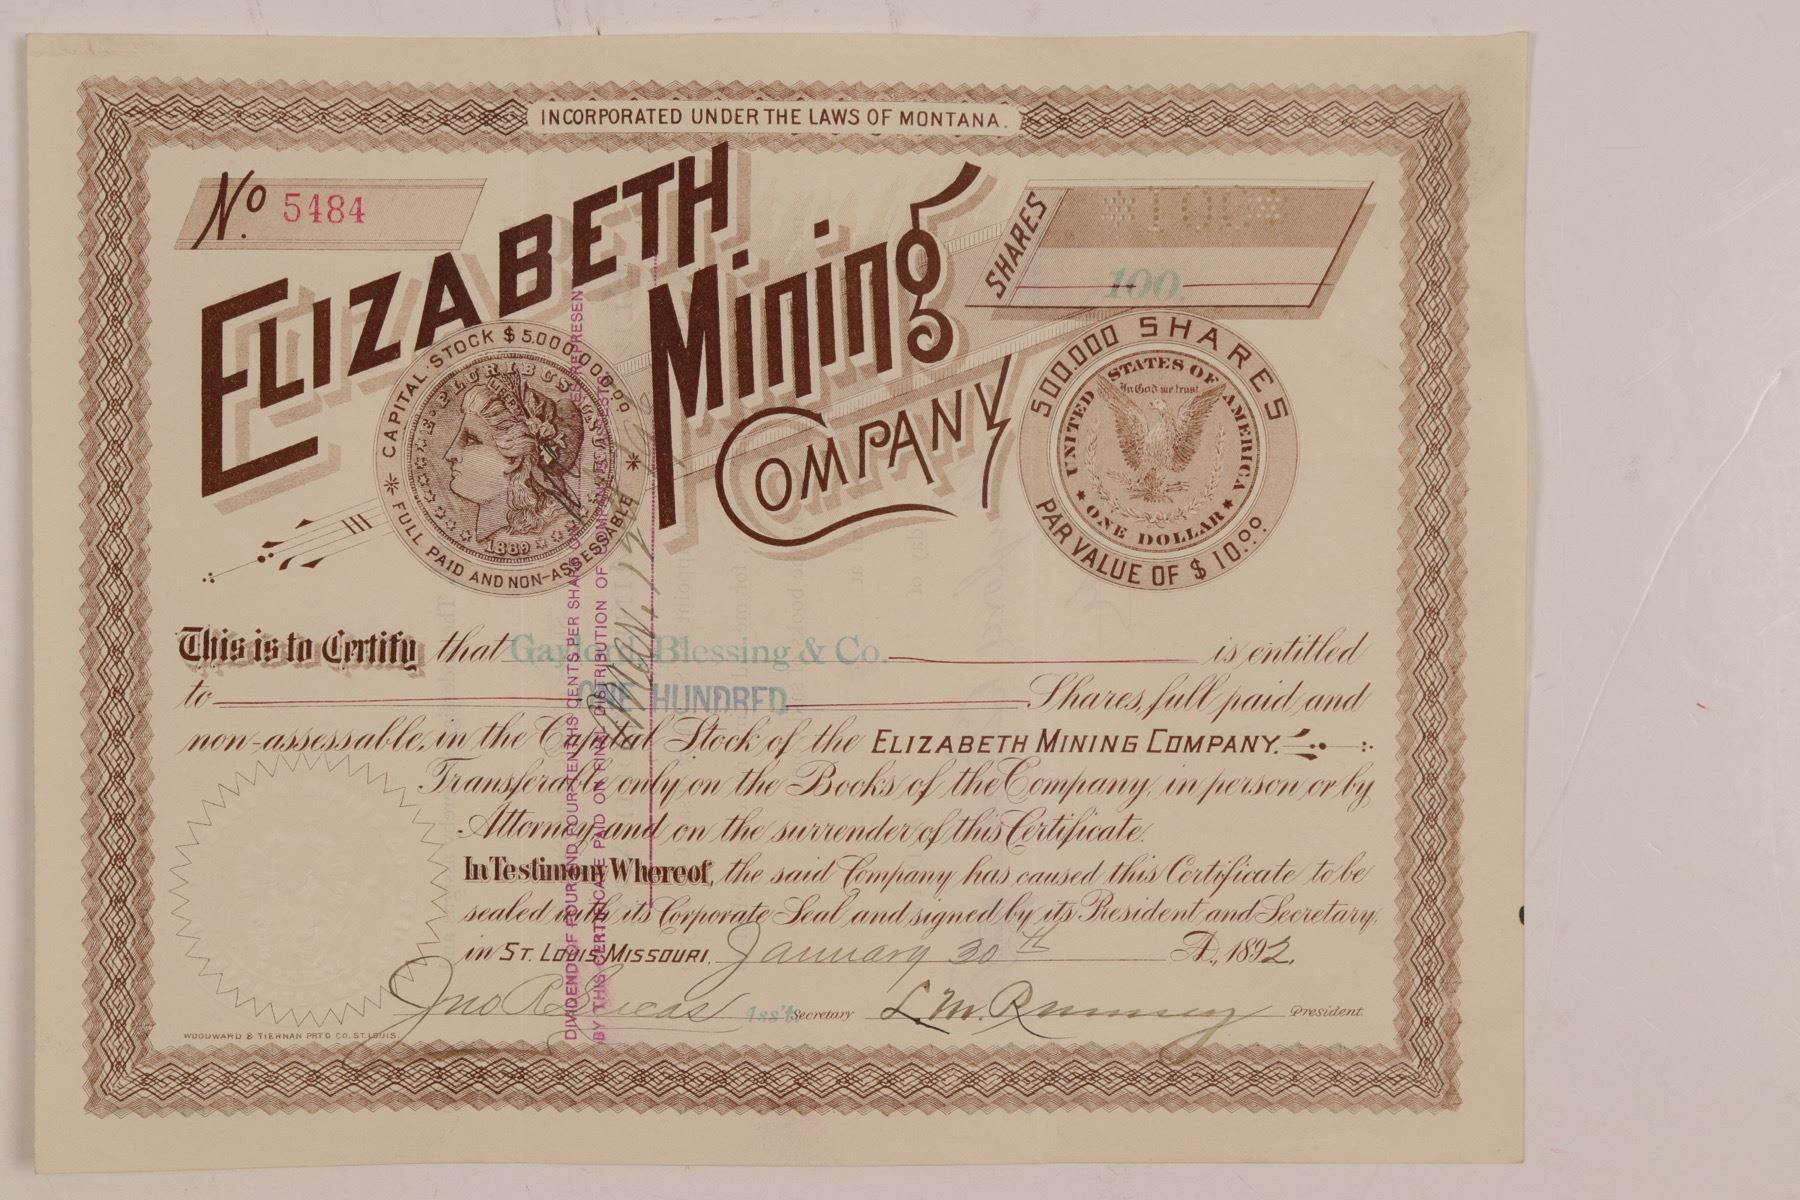 INCORPORATED UNDER THE LAWS OF MONTANA.
No. 5484
ELIZABETH
Mining
COMPANY
SHARES
*100*
100.
CAPITAL STOCK $5.000.000.00
* FULL PAID AND NON-ASSESSABLE *
E·PLURIBUS·UNUM
LIBERTY
1889
500.000 SHARES
PAR VALUE OF $10.00
UNITED STATES OF AMERICA
In God we trust
* ONE DOLLAR *
This is to Certify that Gaylord, Blessing & Co. is entitled
to ONE HUNDRED Shares, full paid and
non-assessable, in the Capital Stock of the ELIZABETH MINING COMPANY.
Transferable only on the Books of the Company, in person or by
Attorney and on the surrender of this Certificate.
In Testimony Whereof, the said Company has caused this Certificate to be
sealed with its Corporate Seal and signed by its President and Secretary,
in ST. LOUIS, MISSOURI, January 30th A.D., 1892.
Jno R Lucas Ass't Secretary L. M. Rumsey President.
WOODWARD & TIERNAN PRT'G CO. ST. LOUIS.
DIVIDEND OF FOUR AND FOUR-TENTHS CENTS PER SHARE ON SHARES REPRESEN
BY THIS CERTIFICATE PAID ON FINAL DISTRIBUTION OF COMPANY'S ASSETS